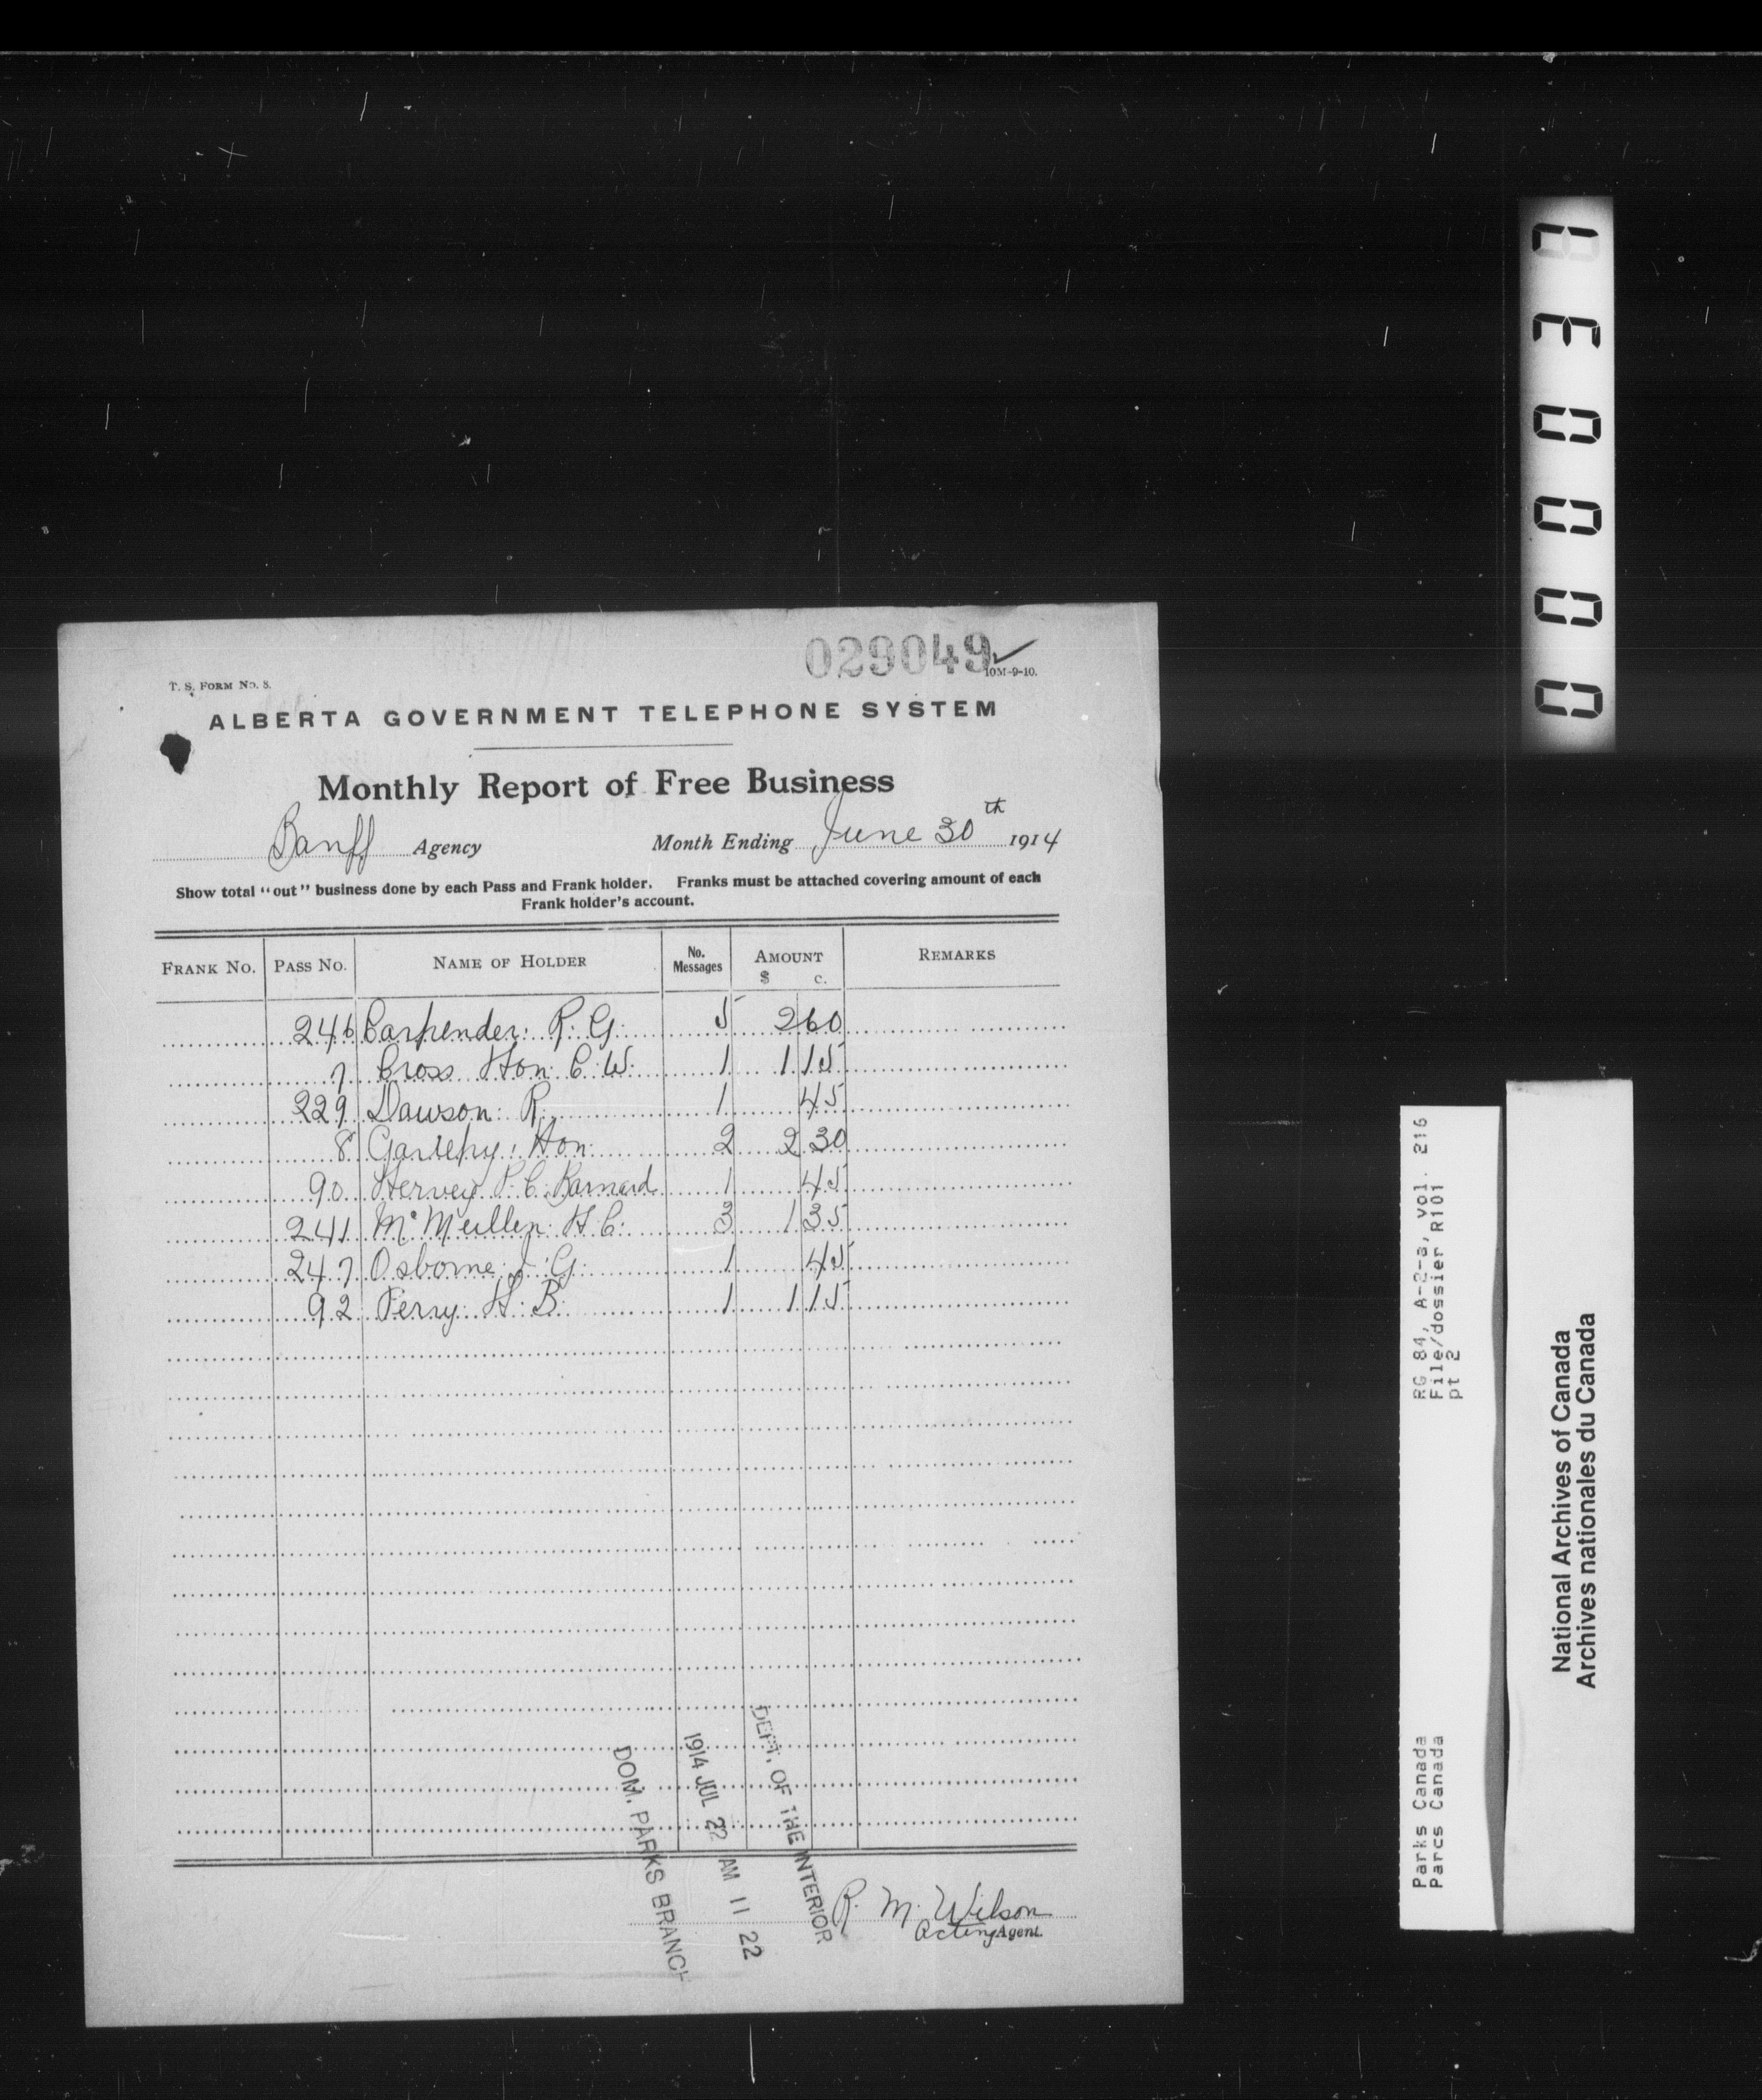 029049
10M-9-10.
T. S. FORM No. 8.
ALBERTA GOVERNMENT TELEPHONE SYSTEM
Monthly Report of Free Business
Banff Agency Month Ending June 30th 1914
Show total "out" business done by each Pass and Frank holder. Franks must be attached covering amount of each
Frank holder's account.
FRANK No. PASS No. NAME OF HOLDER No. Messages AMOUNT $ c. REMARKS
246 Carpender. R. G. 5 2 60
7 Cross Hon. C. W. 1 1 15
229 Dawson. R. 1 45
8 Gariepy. Hon. 2 2 30
90 Hervey P. C. Barnard 1 45
241 McMullen H. C. 3 1 35
247 Osborne J. G. 1 45
92 Perry. H. B. 1 1 15
DEPT. OF THE INTERIOR
1914 JUL 22 AM 11 22
DOM. PARKS BRANCH
R. M. Wilson
Acting Agent.
RG 84, A-2-a, vol. 216
File/dossier R101
pt 2
Parks Canada
Parcs Canada
National Archives of Canada
Archives nationales du Canada